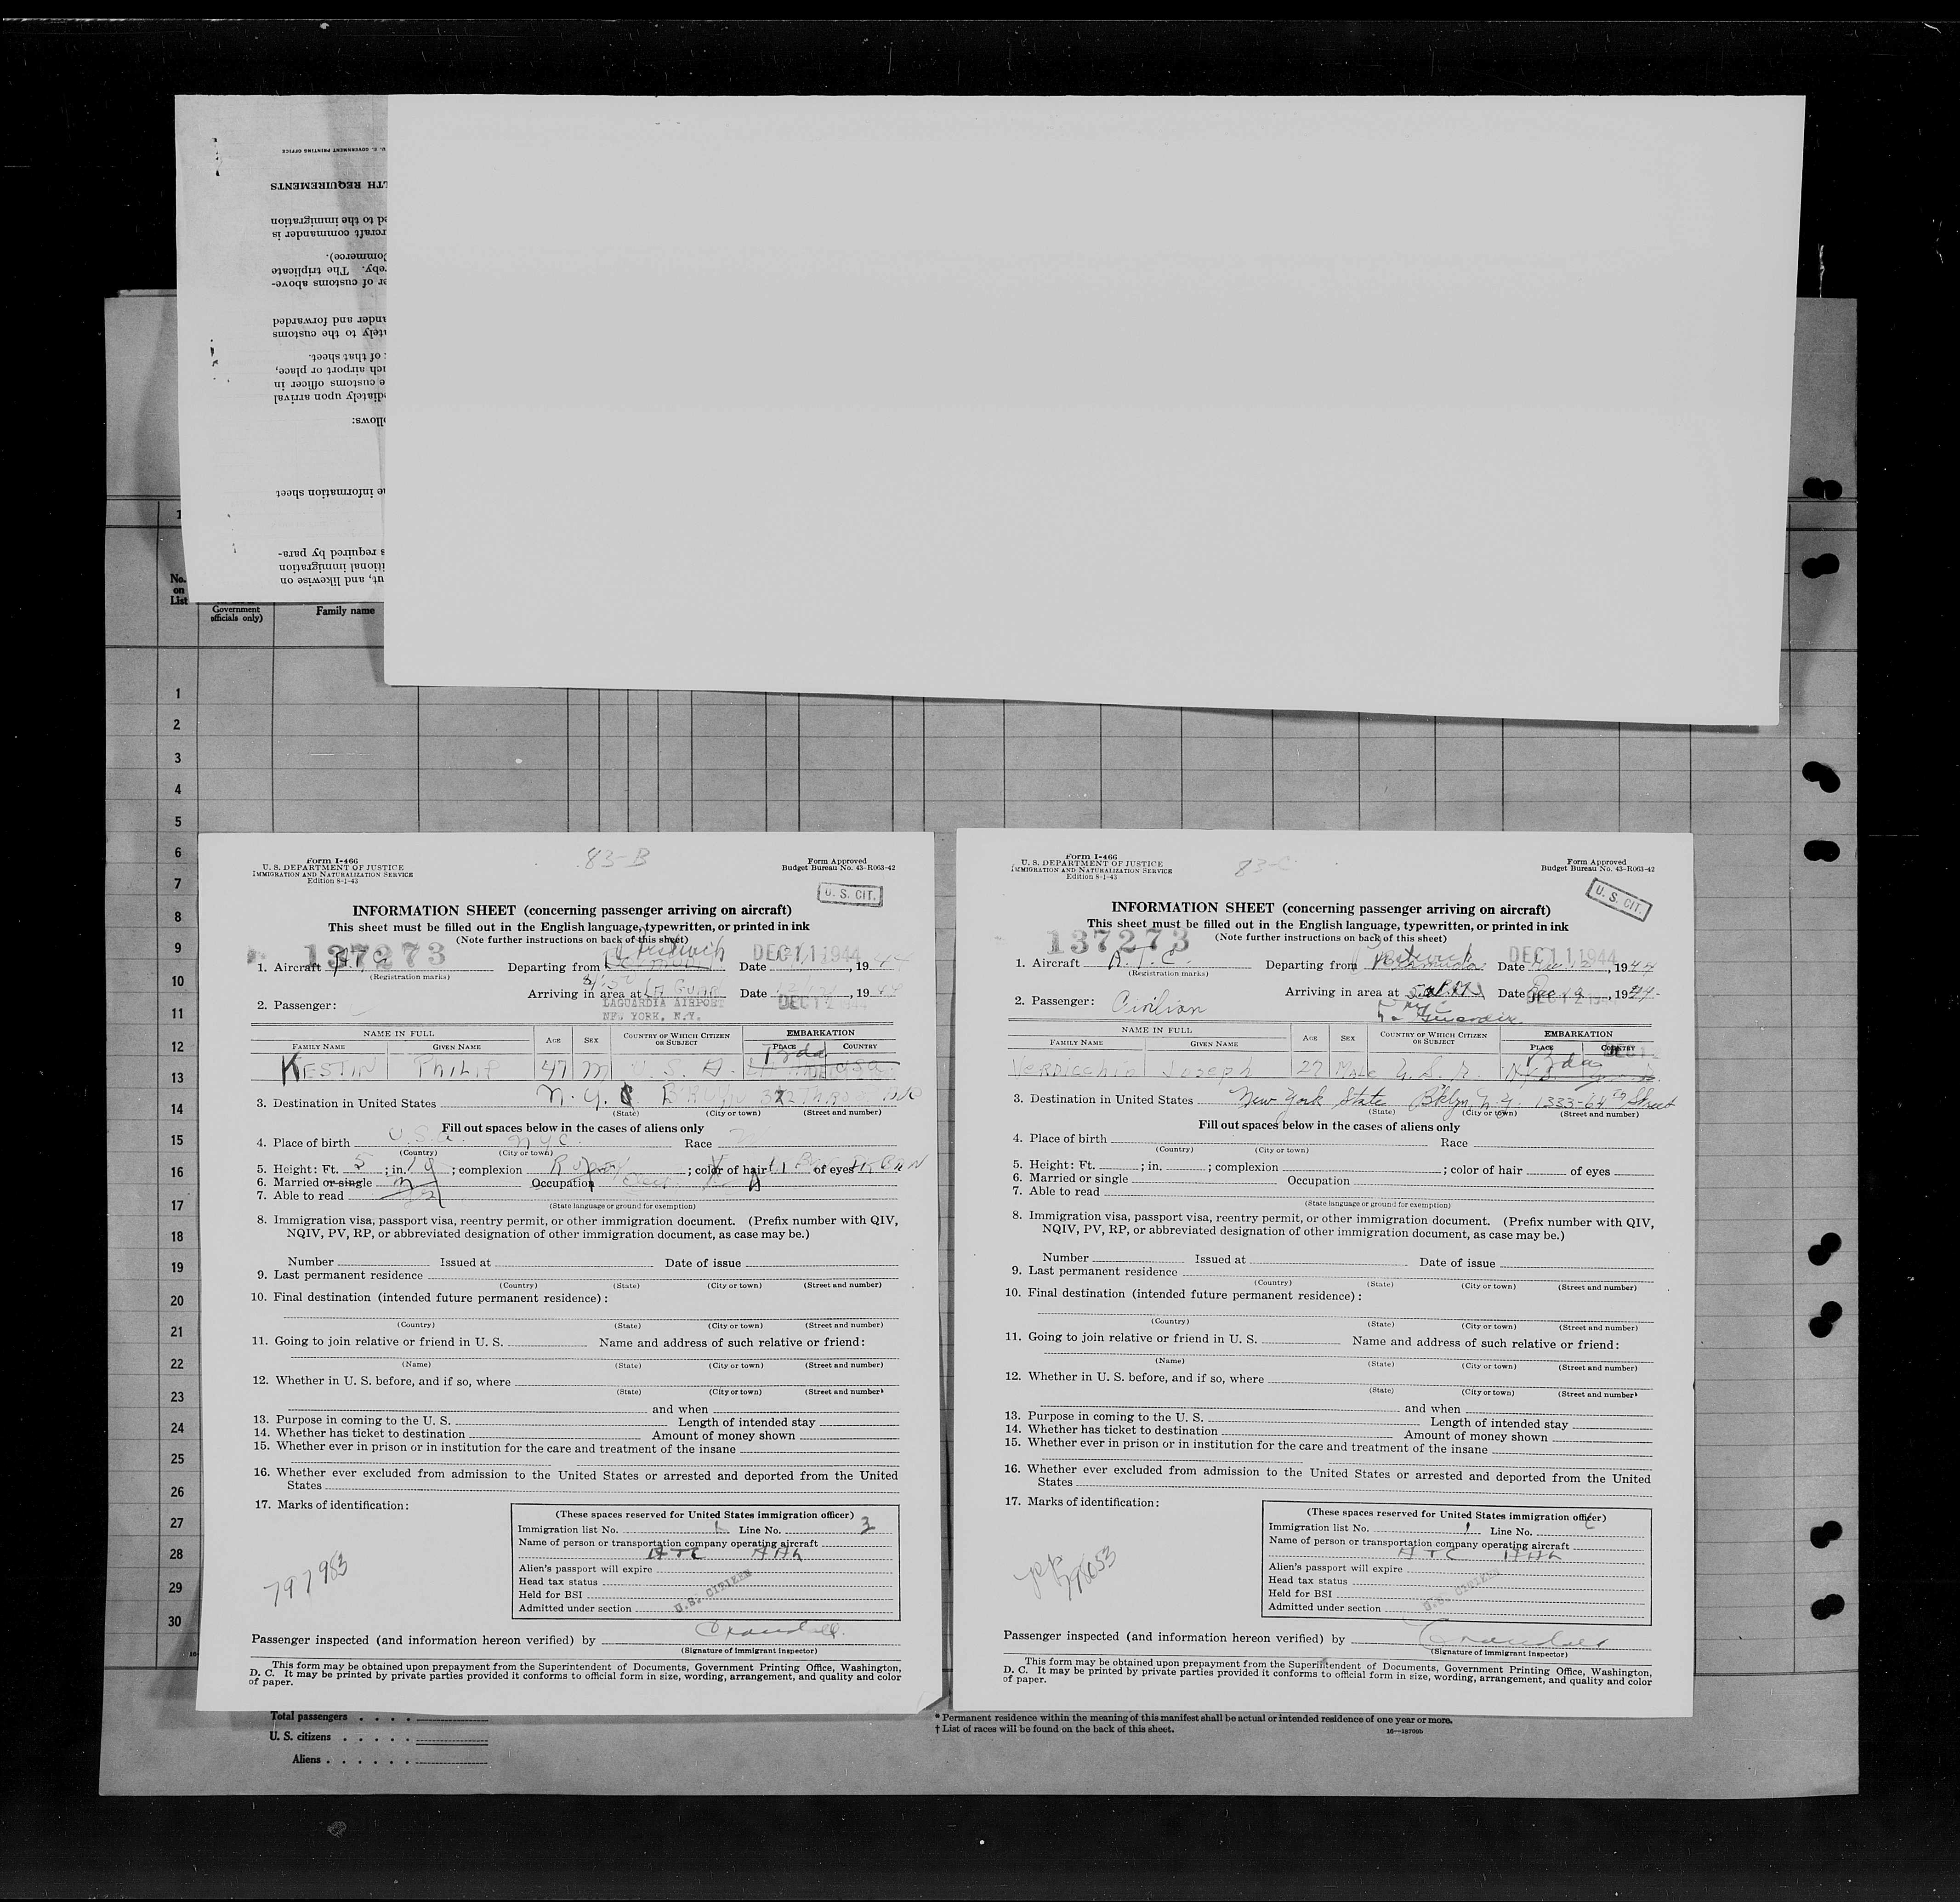 U. S. GOVERNMENT PRINTING OFFICE
LTH REQUIREMENTS
ed to the immigration
rcraft commander is
ommerce).
reby. The triplicate
er of customs above-
ander and forwarded
ately to the customs
of that sheet.
ich airport or place,
e customs officer in
ediately upon arrival
llows:
he information sheet
s required by para-
itional immigration
ut, and likewise on
No. on List
Government officials only)
Family name
1
2
3
4
5
6
7
8
9
10
11
12
13
14
15
16
17
18
19
20
21
22
23
24
25
26
27
28
29
30
Form I-466
U. S. DEPARTMENT OF JUSTICE
IMMIGRATION AND NATURALIZATION SERVICE
Edition 8-1-43
83-B
Form Approved
Budget Bureau No. 43-R063-42
U. S. CIT.
INFORMATION SHEET (concerning passenger arriving on aircraft)
This sheet must be filled out in the English language, typewritten, or printed in ink
(Note further instructions on back of this sheet)
137273
DEC 11 1944
1. Aircraft A.T.C. Departing from Date , 1944
(Registration marks)
Arriving in area at LA GUAR Date , 1944
LAGUARDIA AIRPORT
NEW YORK, N.Y.
DEC 12 1944
2. Passenger:
NAME IN FULL AGE SEX COUNTRY OF WHICH CITIZEN OR SUBJECT EMBARKATION
FAMILY NAME GIVEN NAME PLACE COUNTRY
KESTIN PHILIP 47 M U. S. A. Bda
3. Destination in United States N.Y.
(State) (City or town) (Street and number)
Fill out spaces below in the cases of aliens only
4. Place of birth U.S.A. NYC Race
(Country) (City or town)
5. Height: Ft. 5 ; in. 10 ; complexion RUDDY ; color of hair of eyes
6. Married or single M Occupation
7. Able to read
(State language or ground for exemption)
8. Immigration visa, passport visa, reentry permit, or other immigration document. (Prefix number with QIV,
NQIV, PV, RP, or abbreviated designation of other immigration document, as case may be.)
Number Issued at Date of issue
9. Last permanent residence
(Country) (State) (City or town) (Street and number)
10. Final destination (intended future permanent residence):
(Country) (State) (City or town) (Street and number)
11. Going to join relative or friend in U. S. Name and address of such relative or friend:
(Name) (State) (City or town) (Street and number)
12. Whether in U. S. before, and if so, where
(State) (City or town) (Street and number)
and when
13. Purpose in coming to the U. S. Length of intended stay
14. Whether has ticket to destination Amount of money shown
15. Whether ever in prison or in institution for the care and treatment of the insane
16. Whether ever excluded from admission to the United States or arrested and deported from the United
States
17. Marks of identification:
797983
(These spaces reserved for United States immigration officer)
Immigration list No. 1 Line No. 3
Name of person or transportation company operating aircraft
ATC AAL
Alien's passport will expire
Head tax status
Held for BSI
Admitted under section
U.S. CITIZEN
Passenger inspected (and information hereon verified) by Crandall
(Signature of immigrant inspector)
This form may be obtained upon prepayment from the Superintendent of Documents, Government Printing Office, Washington,
D. C. It may be printed by private parties provided it conforms to official form in size, wording, arrangement, and quality and color
of paper.
Form I-466
U. S. DEPARTMENT OF JUSTICE
IMMIGRATION AND NATURALIZATION SERVICE
Edition 8-1-43
83-C
Form Approved
Budget Bureau No. 43-R063-42
U. S. CIT.
INFORMATION SHEET (concerning passenger arriving on aircraft)
This sheet must be filled out in the English language, typewritten, or printed in ink
(Note further instructions on back of this sheet)
137273
DEC 11 1944
1. Aircraft A.T.C. Departing from Bermuda Date , 1944
(Registration marks)
Arriving in area at Date Dec 12 , 1944
2. Passenger: Civilian
La Guardia
NAME IN FULL AGE SEX COUNTRY OF WHICH CITIZEN OR SUBJECT EMBARKATION
FAMILY NAME GIVEN NAME PLACE COUNTRY
Verdicchio Joseph 27 Male U.S.A. Bda
3. Destination in United States New York State Bklyn, N.Y. 1333-64th Street
(State) (City or town) (Street and number)
Fill out spaces below in the cases of aliens only
4. Place of birth Race
(Country) (City or town)
5. Height: Ft. ; in. ; complexion ; color of hair of eyes
6. Married or single Occupation
7. Able to read
(State language or ground for exemption)
8. Immigration visa, passport visa, reentry permit, or other immigration document. (Prefix number with QIV,
NQIV, PV, RP, or abbreviated designation of other immigration document, as case may be.)
Number Issued at Date of issue
9. Last permanent residence
(Country) (State) (City or town) (Street and number)
10. Final destination (intended future permanent residence):
(Country) (State) (City or town) (Street and number)
11. Going to join relative or friend in U. S. Name and address of such relative or friend:
(Name) (State) (City or town) (Street and number)
12. Whether in U. S. before, and if so, where
(State) (City or town) (Street and number)
and when
13. Purpose in coming to the U. S. Length of intended stay
14. Whether has ticket to destination Amount of money shown
15. Whether ever in prison or in institution for the care and treatment of the insane
16. Whether ever excluded from admission to the United States or arrested and deported from the United
States
17. Marks of identification:
(These spaces reserved for United States immigration officer)
Immigration list No. 1 Line No.
Name of person or transportation company operating aircraft
ATC AAL
Alien's passport will expire
Head tax status
Held for BSI
Admitted under section
U.S. CITIZEN
Passenger inspected (and information hereon verified) by Crandall
(Signature of immigrant inspector)
This form may be obtained upon prepayment from the Superintendent of Documents, Government Printing Office, Washington,
D. C. It may be printed by private parties provided it conforms to official form in size, wording, arrangement, and quality and color
of paper.
Total passengers . . . .
U. S. citizens . . . . .
Aliens . . . . . .
* Permanent residence within the meaning of this manifest shall be actual or intended residence of one year or more.
† List of races will be found on the back of this sheet.
16—18709b